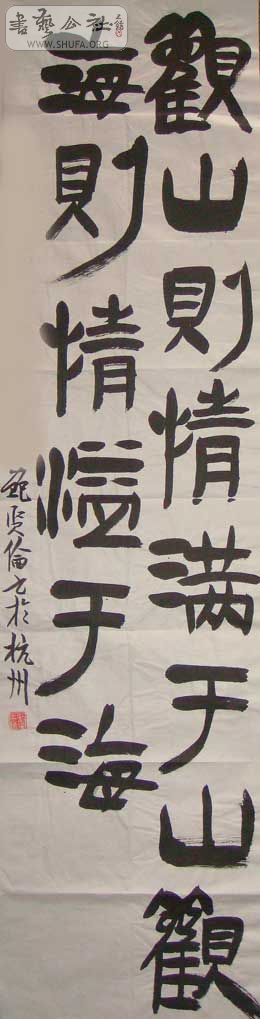 書藝公社
WWW.SHUFA.ORG
觀山則情满于山觀
海則情溢于海
鮑贤倫书於杭州